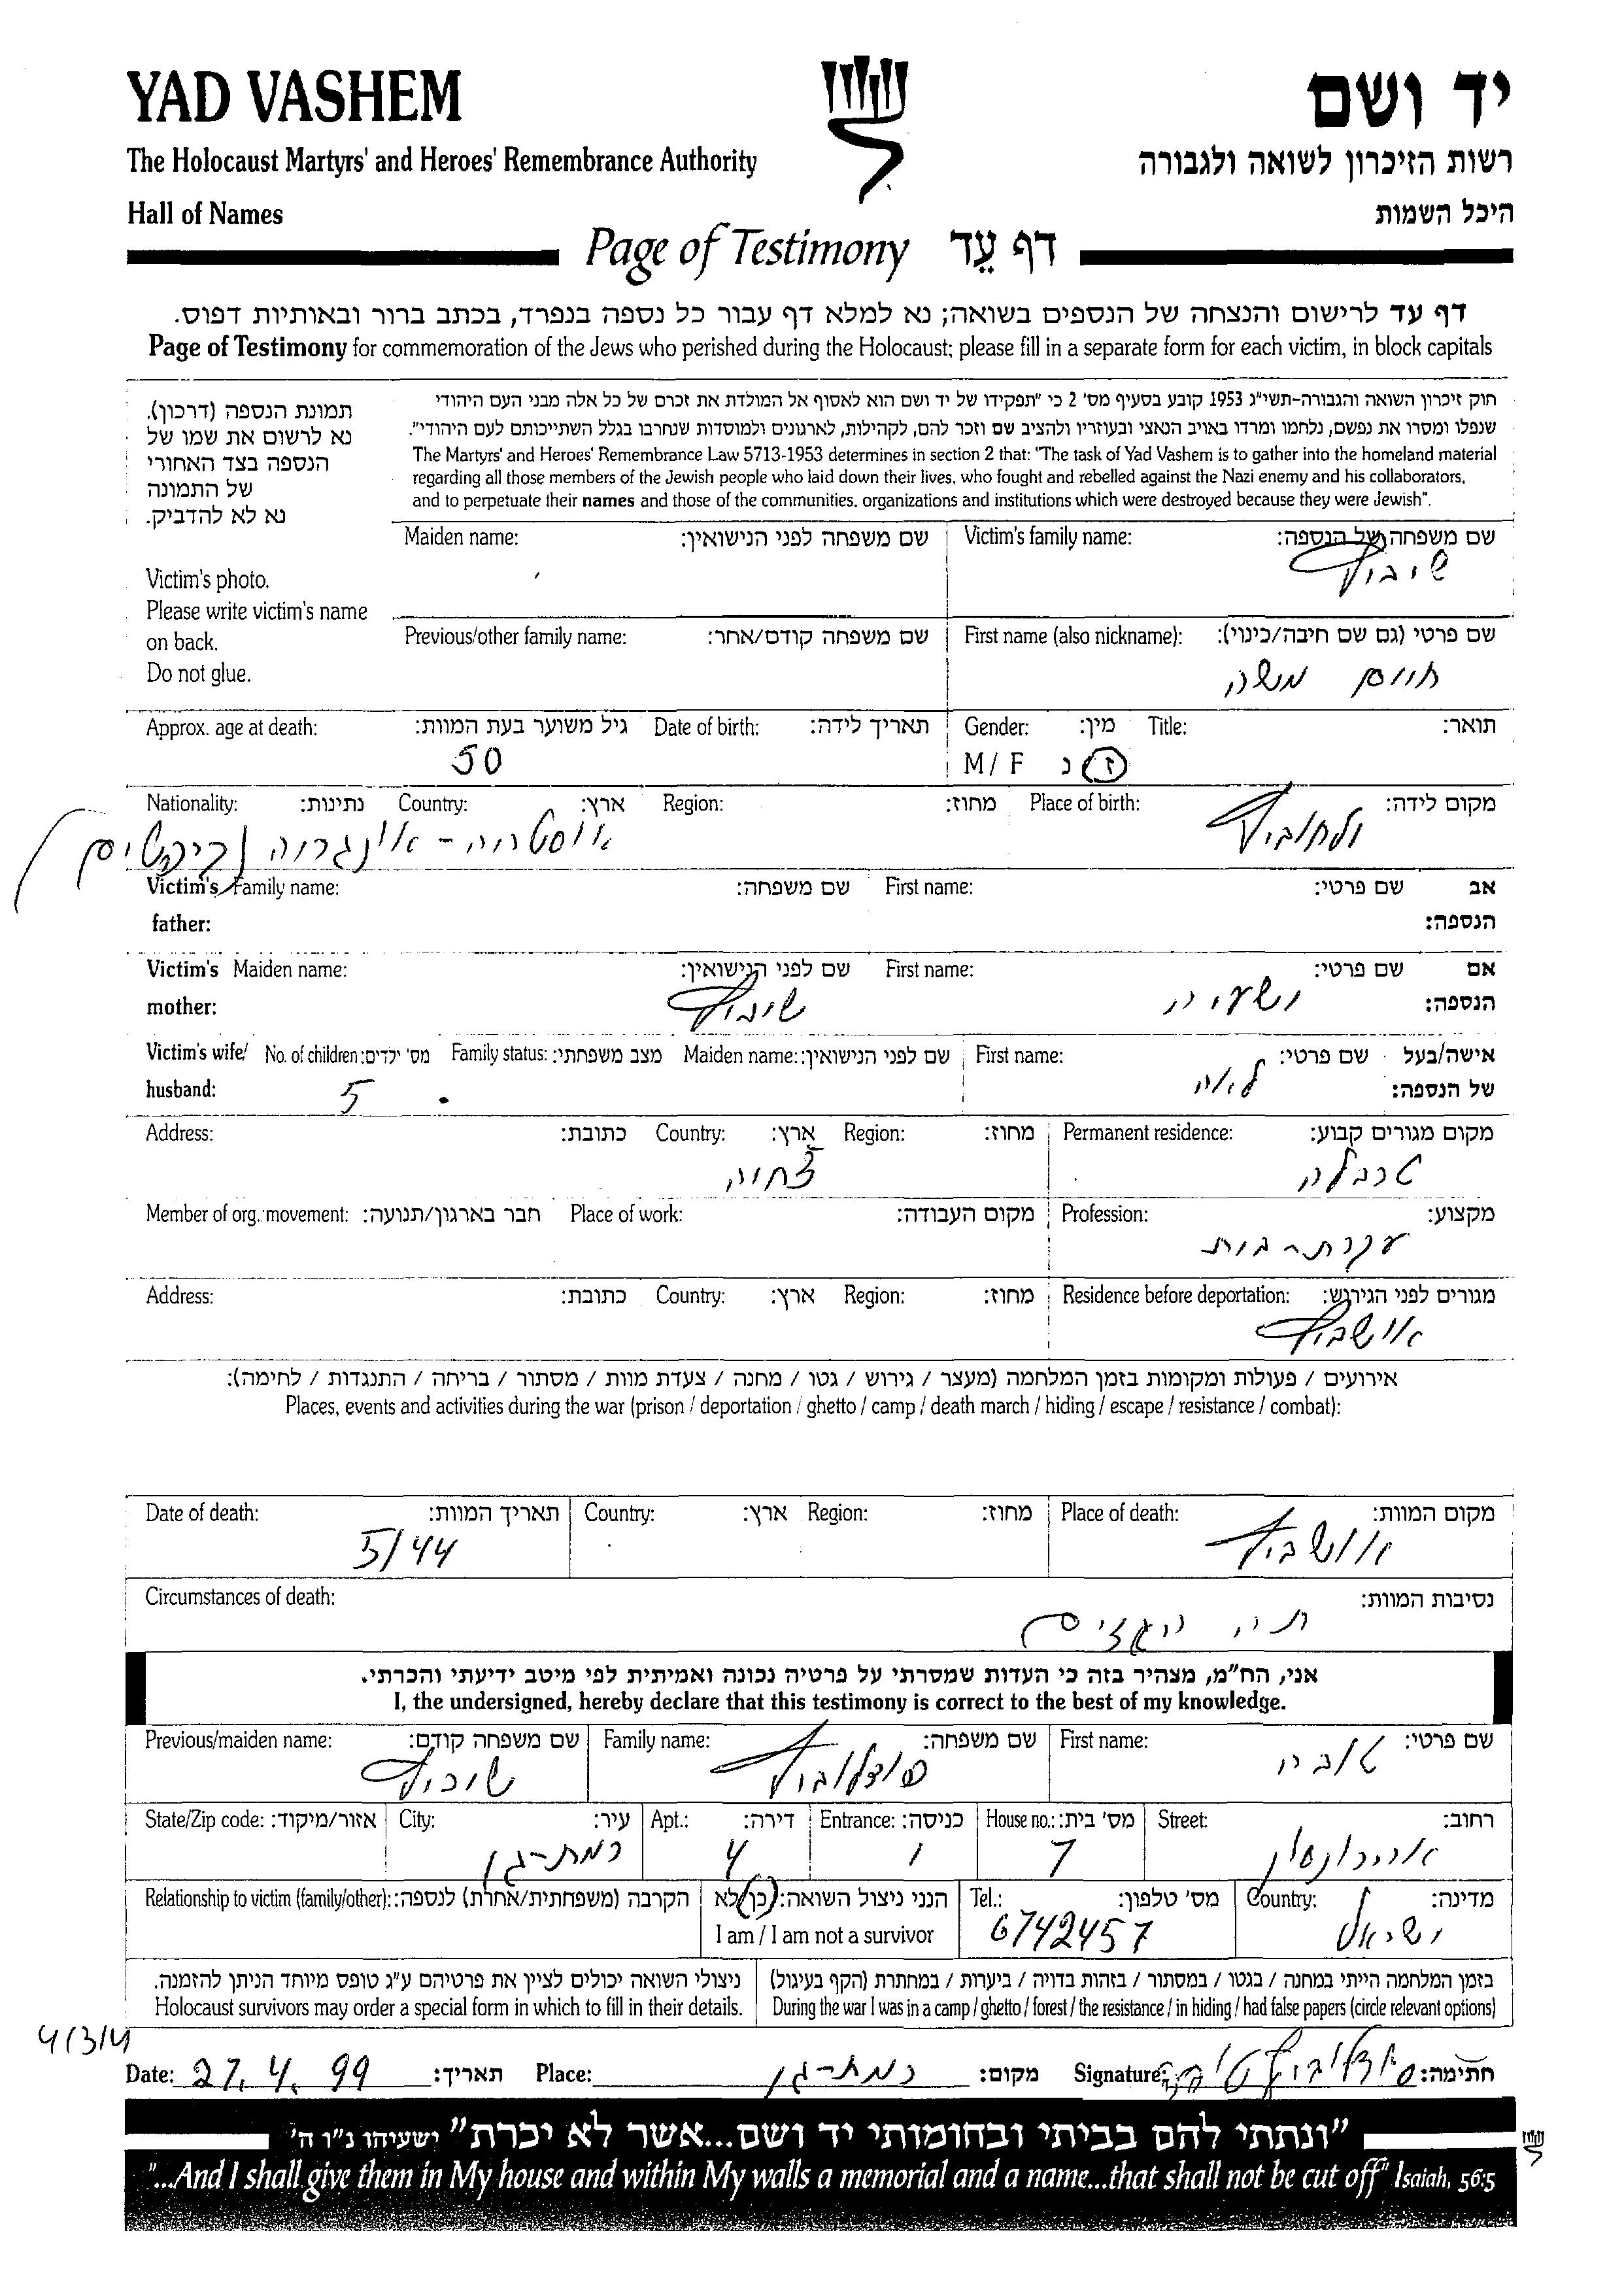 YAD VASHEM
יד ושם
The Holocaust Martyrs' and Heroes' Remembrance Authority
רשות הזיכרון לשואה ולגבורה
Hall of Names
היכל השמות
Page of Testimony דף עֵד
דף עד לרישום והנצחה של הנספים בשואה; נא למלא דף עבור כל נספה בנפרד, בכתב ברור ובאותיות דפוס.
Page of Testimony for commemoration of the Jews who perished during the Holocaust; please fill in a separate form for each victim, in block capitals
תמונת הנספה (דרכון).
נא לרשום את שמו של
הנספה בצד האחורי
של התמונה
נא לא להדביק.
Victim's photo.
Please write victim's name
on back.
Do not glue.
חוק זיכרון השואה והגבורה-תשי"ג 1953 קובע בסעיף מס' 2 כי "תפקידו של יד ושם הוא לאסוף אל המולדת את זכרם של כל אלה מבני העם היהודי
שנפלו ומסרו את נפשם, נלחמו ומרדו באויב הנאצי ובעוזריו ולהציב שם וזכר להם, לקהילות, לארגונים ולמוסדות שנחרבו בגלל השתייכותם לעם היהודי".
The Martyrs' and Heroes' Remembrance Law 5713-1953 determines in section 2 that: "The task of Yad Vashem is to gather into the homeland material
regarding all those members of the Jewish people who laid down their lives, who fought and rebelled against the Nazi enemy and his collaborators,
and to perpetuate their names and those of the communities, organizations and institutions which were destroyed because they were Jewish".
שם משפחה של הנספה: Victim's family name:
שם משפחה לפני הנישואין: Maiden name:
שיבוביץ
שם פרטי (גם שם חיבה/כינוי): First name (also nickname):
שם משפחה קודם/אחר: Previous/other family name:
חיים משה
תואר: Title: מין: Gender:
תאריך לידה: Date of birth: גיל משוער בעת המוות: Approx. age at death:
ז נ M / F
50
מקום לידה: Place of birth: מחוז: Region: ארץ: Country: נתינות: Nationality:
אוסטריה - אונגריה
אב שם פרטי: First name: שם משפחה: Victim's Family name:
הנספה: father:
אם שם פרטי: First name: שם לפני הנישואין: Victim's Maiden name:
הנספה: mother:
אישה/בעל שם פרטי: First name: שם לפני הנישואין: Maiden name: מצב משפחתי: Family status: מס' ילדים: No. of children: Victim's wife/
של הנספה: husband:
לאה
5
מקום מגורים קבוע: Permanent residence: מחוז: Region: ארץ: Country: כתובת: Address:
טרבלה
מקצוע: Profession: מקום העבודה: Place of work: חבר בארגון/תנועה: Member of org./movement:
עקרת-בית
מגורים לפני הגירוש: Residence before deportation: מחוז: Region: ארץ: Country: כתובת: Address:
אושביץ
אירועים / פעולות ומקומות בזמן המלחמה (מעצר / גירוש / גטו / מחנה / צעדת מוות / מסתור / בריחה / התנגדות / לחימה):
Places, events and activities during the war (prison / deportation / ghetto / camp / death march / hiding / escape / resistance / combat):
מקום המוות: Place of death: מחוז: Region: ארץ: Country: תאריך המוות: Date of death:
אושביץ
5/44
נסיבות המוות: Circumstances of death:
תא הגאזים
אני, הח"מ, מצהיר בזה כי העדות שמסרתי על פרטיה נכונה ואמיתית לפי מיטב ידיעתי והכרתי.
I, the undersigned, hereby declare that this testimony is correct to the best of my knowledge.
שם פרטי: First name: שם משפחה: Family name: שם משפחה קודם: Previous/maiden name:
טובה
רחוב: Street: מס' בית: House no.: כניסה: Entrance: דירה: Apt.: עיר: City: אזור/מיקוד: State/Zip code:
7 1 4 רמת-גן
מדינה: Country: מס' טלפון: Tel.: הנני ניצול השואה: כן/לא הקרבה (משפחתית/אחרת) לנספה: Relationship to victim (family/other):
ישראל 6742457 I am / I am not a survivor
בזמן המלחמה הייתי במחנה / בגטו / במסתור / בזהות בדויה / ביערות / במחתרת (הקף בעיגול)
During the war I was in a camp / ghetto / forest / the resistance / in hiding / had false papers (circle relevant options)
ניצולי השואה יכולים לציין את פרטיהם ע"ג טופס מיוחד הניתן להזמנה.
Holocaust survivors may order a special form in which to fill in their details.
חתימה: Signature: מקום: רמת-גן Place: תאריך: 27.4.99 Date:
"ונתתי להם בביתי ובחומותי יד ושם...אשר לא יכרת" ישעיהו נ"ו ה'
"...And I shall give them in My house and within My walls a memorial and a name...that shall not be cut off" Isaiah, 56:5